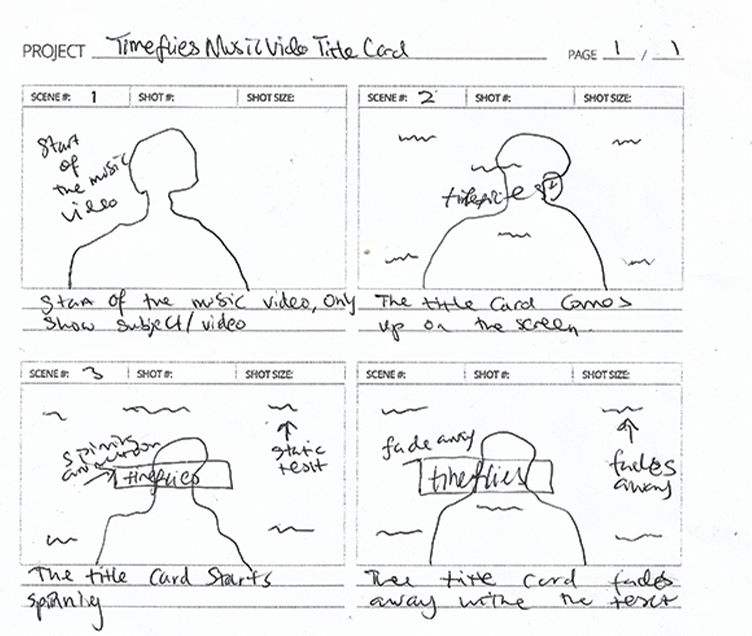 PROJECT Timeflies Music Video Title Card PAGE 1 / 1
SCENE #: 1 SHOT #: SHOT SIZE:
Start
of
the music
video
Start of the music video, only
show subject/video
SCENE #: 2 SHOT #: SHOT SIZE:
The title Card Comes
up on the screen.
SCENE #: 3 SHOT #: SHOT SIZE:
spinning
timeflies
static
The title Card Starts
SCENE #: SHOT #: SHOT SIZE:
fade away
timeflies
fades
away
title card fades
away the